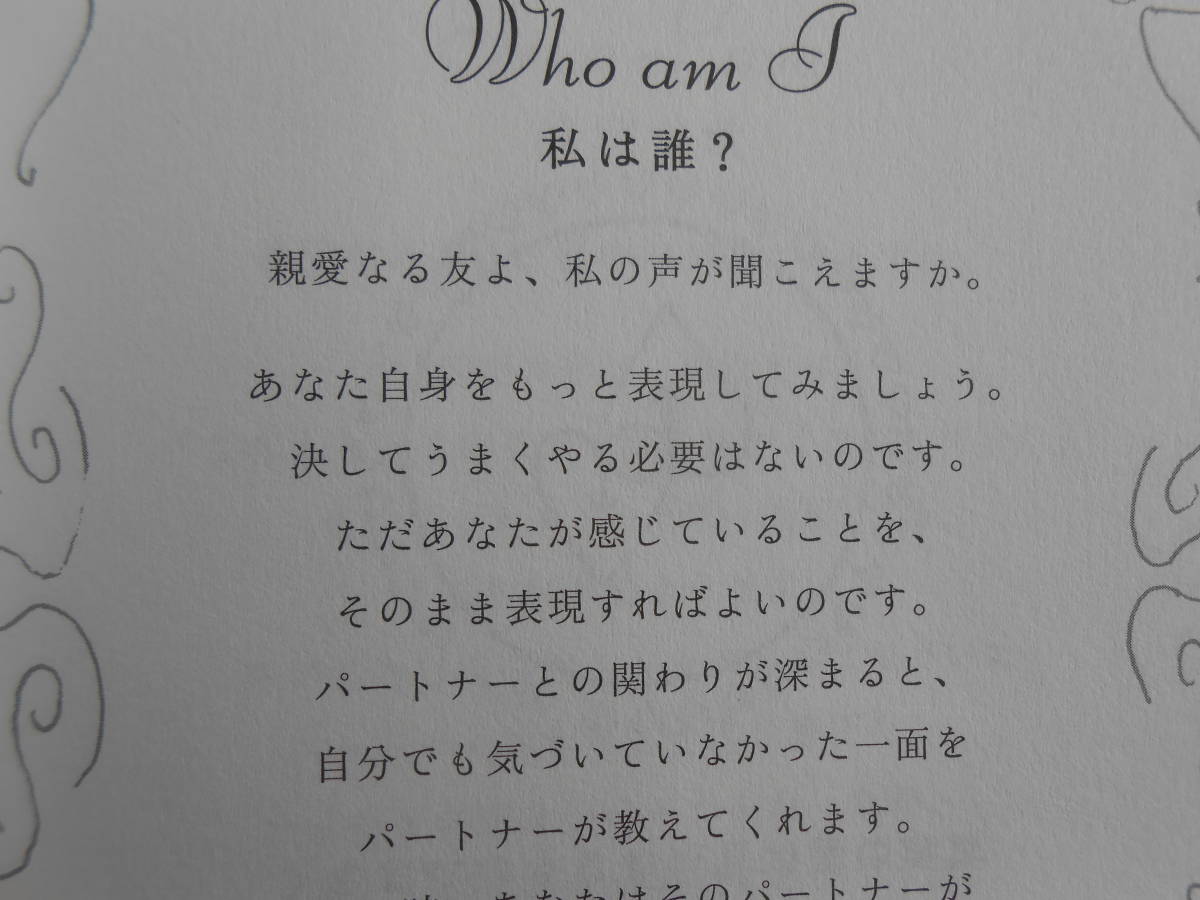 Who am I
私は誰？
親愛なる友よ、私の声が聞こえますか。
あなた自身をもっと表現してみましょう。
決してうまくやる必要はないのです。
ただあなたが感じていることを、
そのまま表現すればよいのです。
パートナーとの関わりが深まると、
自分でも気づいていなかった一面を
パートナーが教えてくれます。
あなたはそのパートナーが